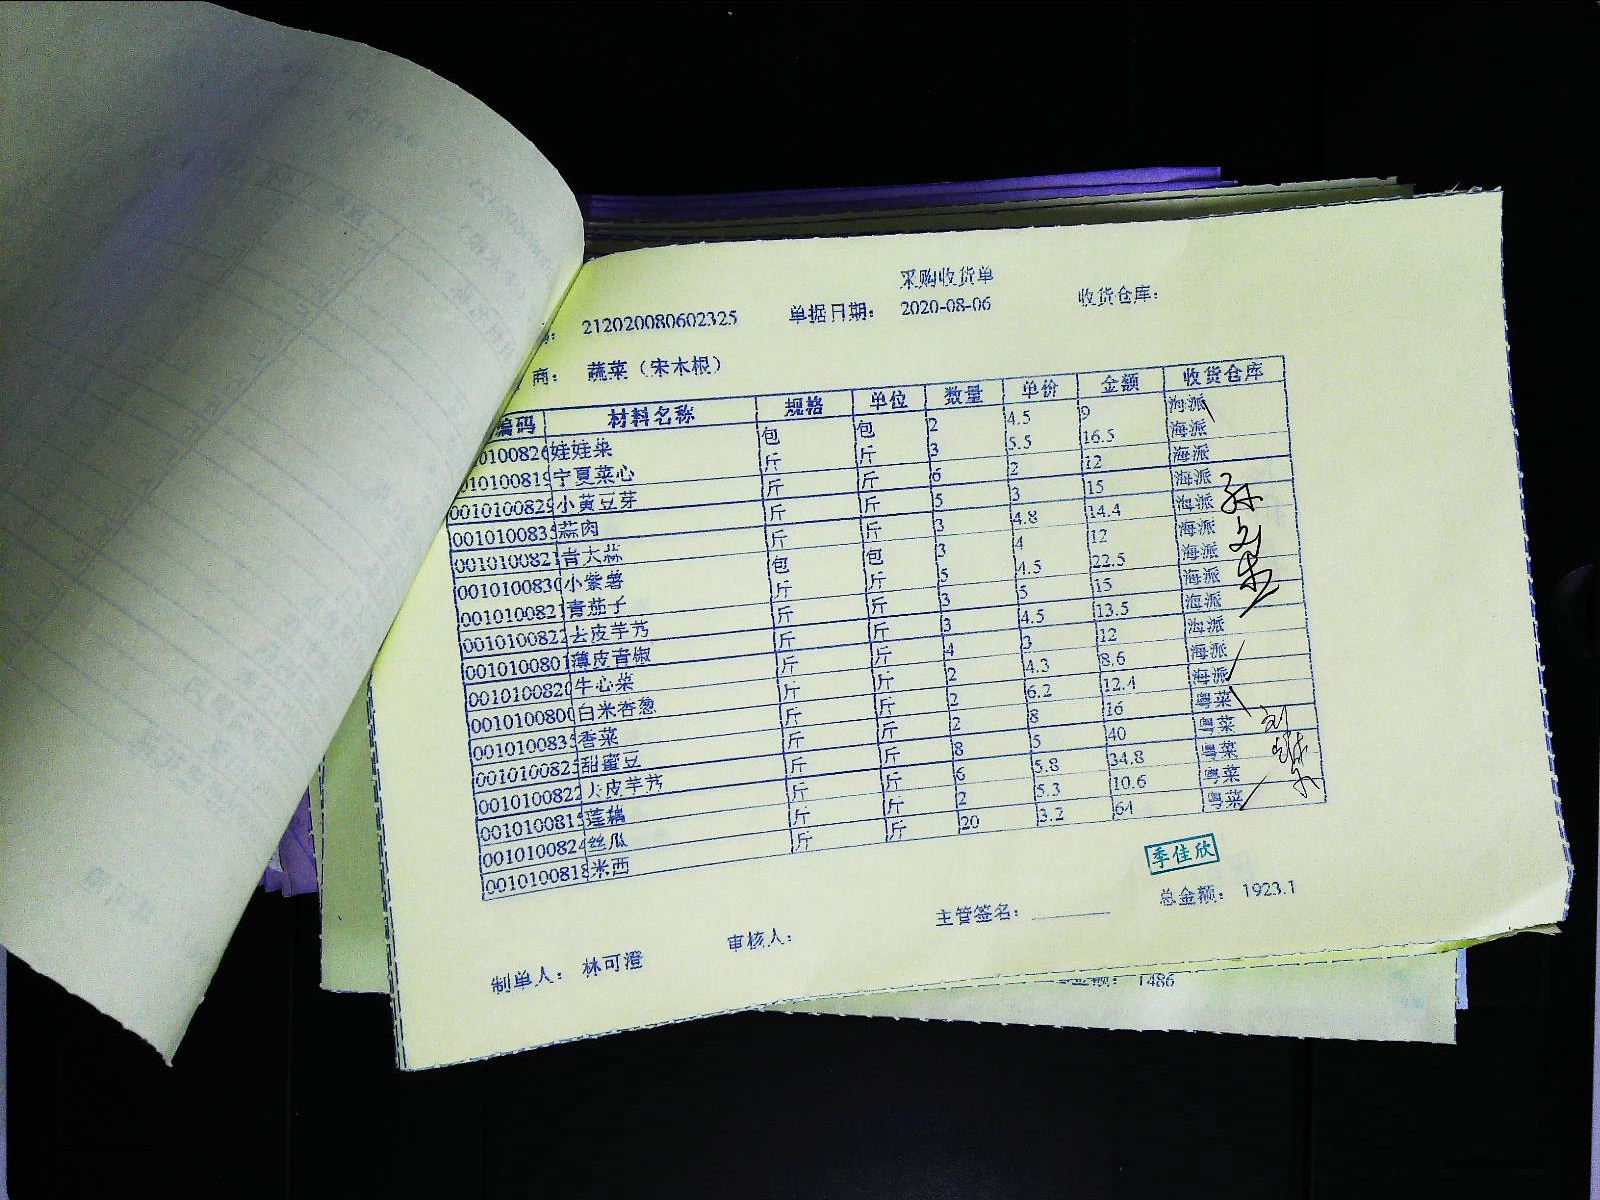 采购收货单
212020080602325 单据日期： 2020-08-06 收货仓库：
商： 蔬菜（宋木根）
编码 材料名称 规格 单位 数量 单价 金额 收货仓库
010100826 娃娃菜 包 包 2 4.5 9 海派
010100819 宁夏菜心 斤 斤 3 5.5 16.5 海派
0010100829 小黄豆芽 斤 斤 6 2 12 海派
0010100835 蒜肉 斤 斤 5 3 15 海派
0010100821 青大蒜 斤 斤 3 4.8 14.4 海派
0010100830 小紫薯 包 包 3 4 12 海派
0010100821 青茄子 斤 斤 5 4.5 22.5 海派
0010100822 去皮芋艿 斤 斤 3 5 15 海派
0010100801 薄皮青椒 斤 斤 3 4.5 13.5 海派
0010100820 牛心菜 斤 斤 4 3 12 海派
0010100800 白米杏葱 斤 斤 2 4.3 8.6 海派
0010100835 香菜 斤 斤 2 6.2 12.4 海派
0010100825 甜蜜豆 斤 斤 2 8 16 粤菜
0010100822 去皮芋艿 斤 斤 8 5 40 粤菜
0010100815 莲藕 斤 斤 6 5.8 34.8 粤菜
0010100824 丝瓜 斤 斤 2 5.3 10.6 粤菜
0010100818 米西 斤 斤 20 3.2 64 粤菜
季佳欣
制单人： 林可澄 审核人： 主管签名： 总金额： 1923.1
1486